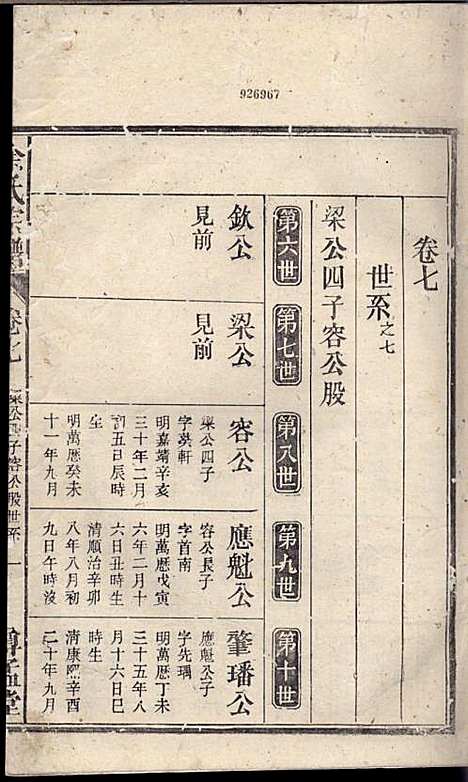 926967
卷七
世系之七
梁公四子容公股
第六世
第七世
第八世
第九世
第十世
欽公
見前
梁公
見前
容公
梁公四子
字葵軒
明嘉靖辛亥
三十年二月
初五日辰時
生
明萬曆癸未
十一年九月
應魁公
容公長子
字首南
明萬曆戊寅
六年二月十
六日丑時生
清順治辛卯
八年八月初
九日午時歿
肇璠公
應魁公子
字先瑀
明萬曆丁未
三十五年八
月十六日巳
時生
清康熙辛酉
二十年九月
余氏宗譜
卷七
梁公四子容公股世系
一
尊孟堂